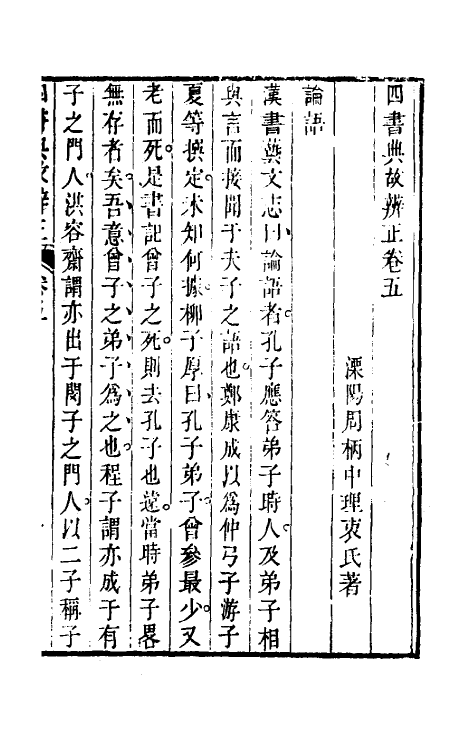 四書典故辨正卷五
溧陽周柄中理衷氏著
論語
漢書藝文志曰論語者孔子應答弟子時人及弟子相
與言而接聞于夫子之語也鄭康成以爲仲弓子游子
夏等撰定未知何據柳子厚曰孔子弟子曾參最少又
老而死是書記曾子之死則去孔子也遠當時弟子畧
無存者矣吾意曾子之弟子爲之也程子謂亦成于有
子之門人洪容齋謂亦出于閔子之門人以二子稱子